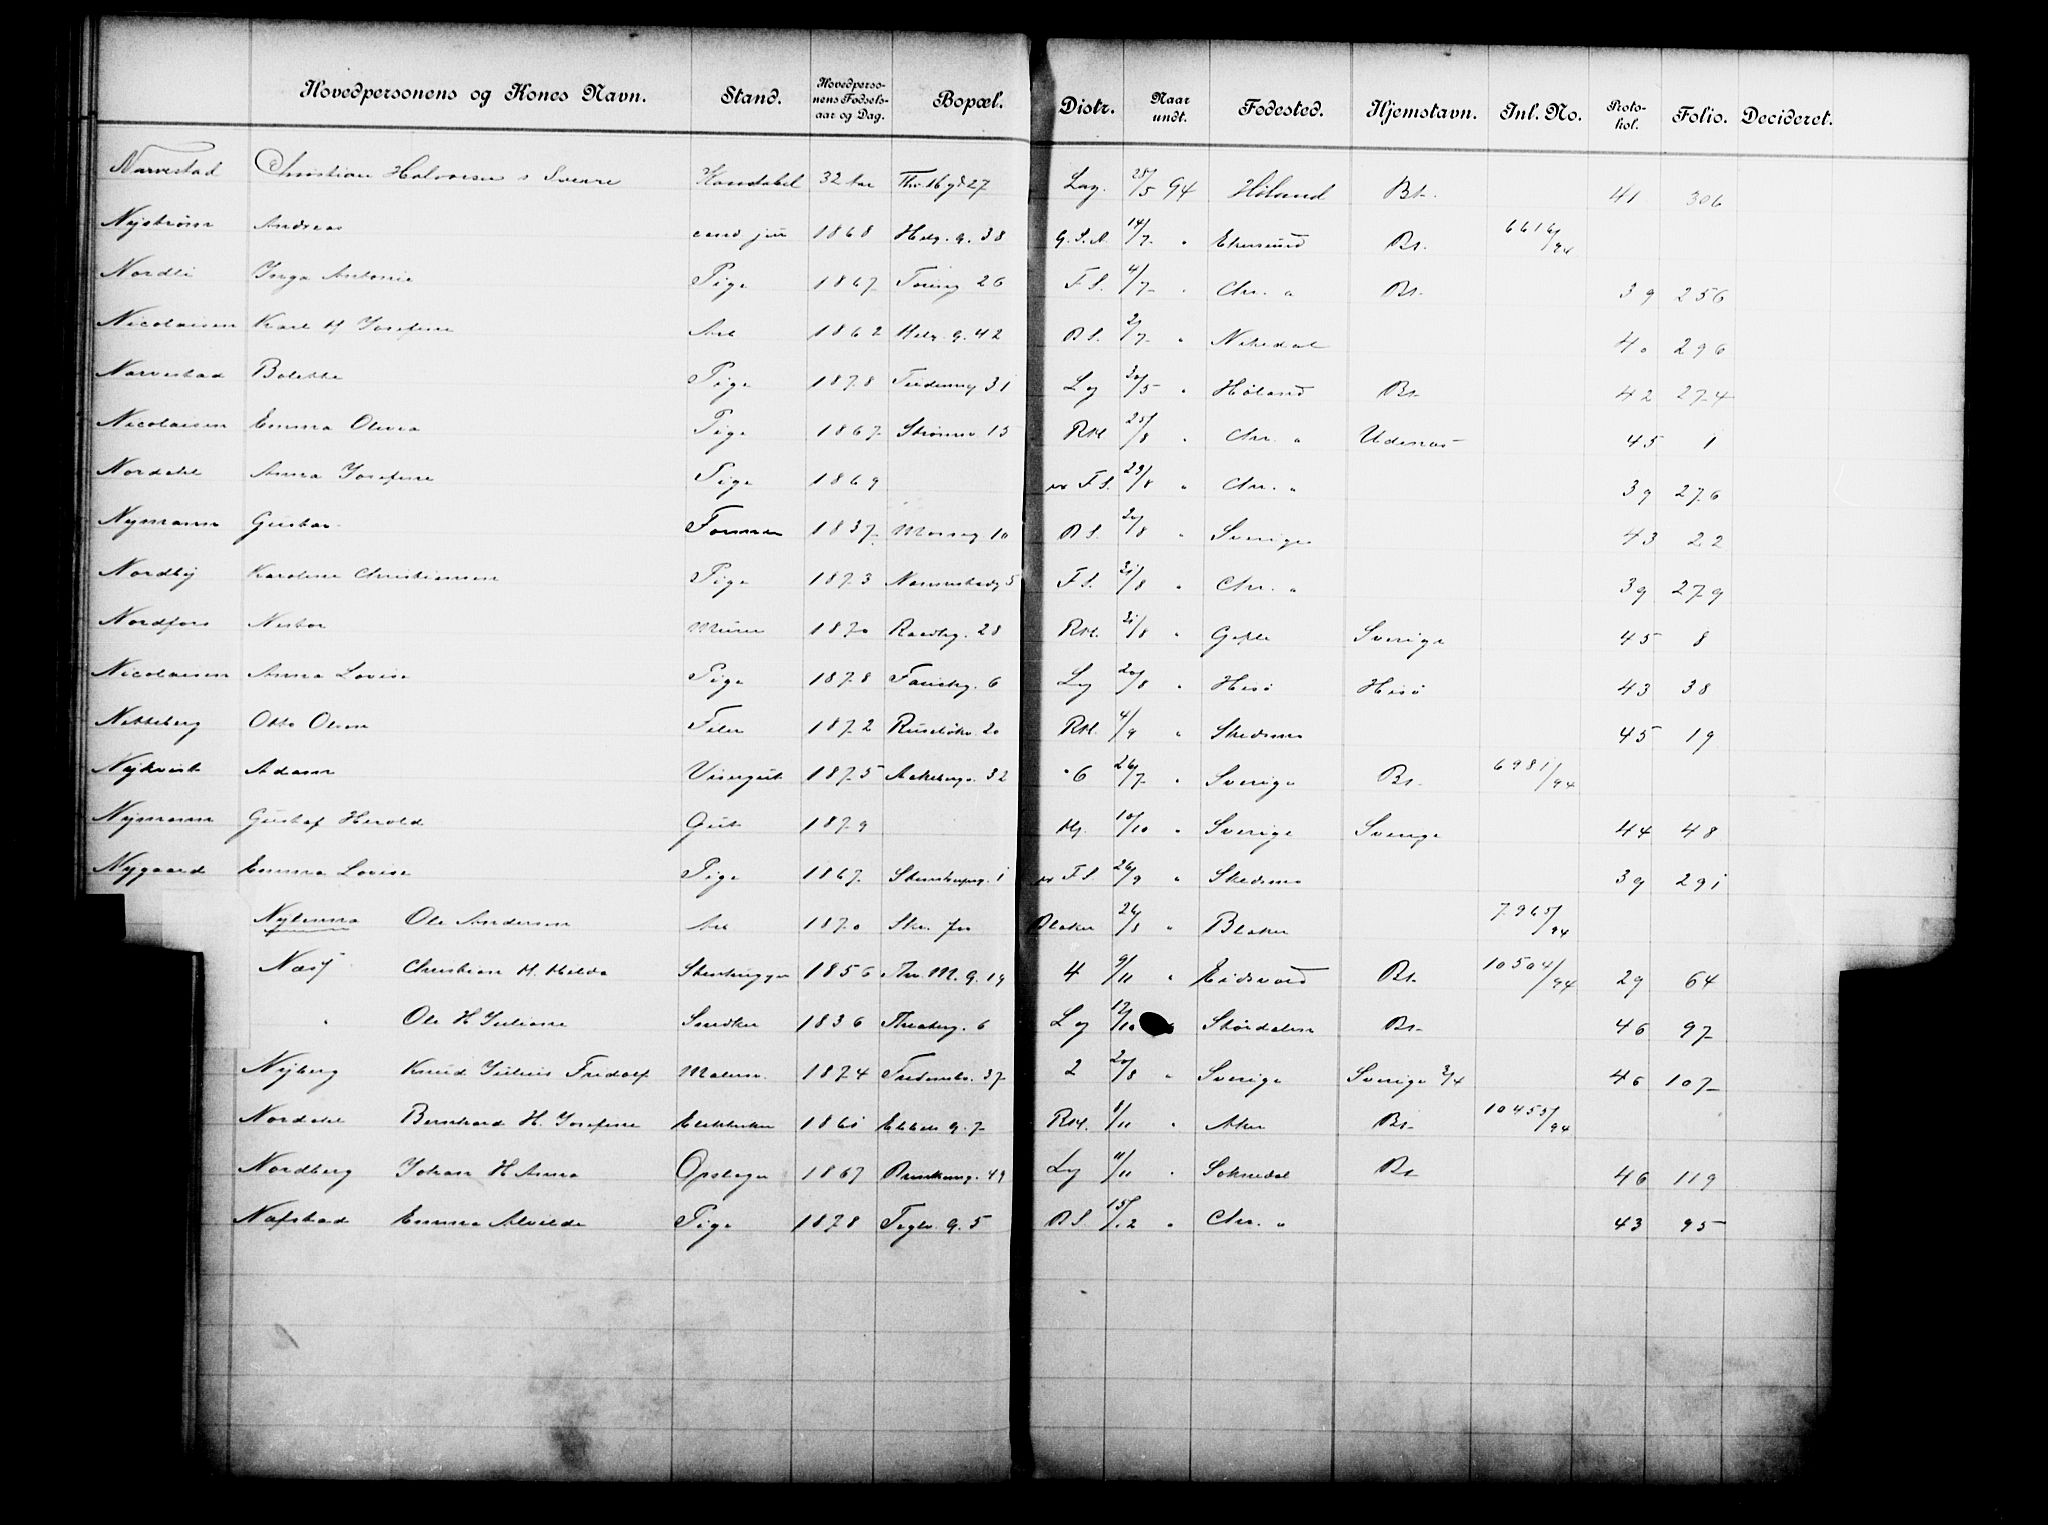 Hovedpersonens og Kones Navn. Stand. Hovedpersonens Fødselsaar og Dag. Bopæl. Distr. Naar undt. Fødested. Hjemstavn. Inl. No. Protokol. Folio. Decideret.
Narvestad Christian Halvorsen 32 Aar 27 Lag. 94 Høland Bt. 41 306
Nystrøm Andreas cand jur 1868 Helg. g. 38 G.S.N. 14/7 " Ekersund Bt. 6616/94
Nordli Inga Antonie Pige 1867 26 F.S. 4/7 " Chr. " Bt. 39 256
Nicolaisen Karl H Josefine Arb 1862 Helg. g. 42 B.S. 2/7 " Nitedal 40 296
Narvestad Bolette Pige 1878 31 Lg 30/5 " Høland Bt 42 274
Nicolaisen Emma Olivia Pige 1867 Strømsv. 15 RM 25/8 " Chr. " Udenas 45 1
Nordahl Anna Josefine Pige 1869 F.S. 29/8 " Chr. " 39 276
Nymann Gustav 1837 Mosseg 10 B.S. /8 " Sverige 43 22
Nordby Karoline Christiansen Pige 1873 5 F.S. 31/8 " Chr. " 39 279
Nordfors Nestor Murer 1870 28 RM. 31/8 " Gefle Sverige 45 8
Nicolaisen Anna Lovise Pige 1878 6 Lg 20/8 " Hisø Hisø 43 38
Netteberg Otto Olsen Filer 1872 Ruseløkv. 20 RM. 4/9 " Skedsmo 45 19
Nykvist Adam Visergut 1875 Aakebergv. 32 6 26/7 " Sverige Bt. 6981/94
Nymann Gustaf Herold Gut 1879 10/10 " Sverige Sverige 44 48
Nygaard Emma Lovise Pige 1867 1 F.S. 26/9 " Skedsmo 39 291
Nylenna Ole Andersen Arb 1870 Blaker 26/8 " Blaker 7965/94
Næss Christian H. Hilda Stenhugger 1856 Thv. M. g. 19 4 9/11 " Eidsvold Bt. 10504/94 29 64
" Ole H Juliane Snedker 1836 6 Lg 12/10 Størdalen Bt. 46 97
Nyberg Knud Julius Fridolf Malersv. 1874 37 2 20/8 " Sverige Sverige 3/4 46 107
Nordahl Bernhard H. Josefine 1861 g. 7 RM. 8/11 " Aker Bt. 10455/94
Nordberg Johan H Anna Opslager 1867 49 Lg 11/11 " Soknedal Bt 46 119
Nafstad Emma Alvilde Pige 1878 Teglv. g. 5 B.S. 15/12 " Chr. " 43 95